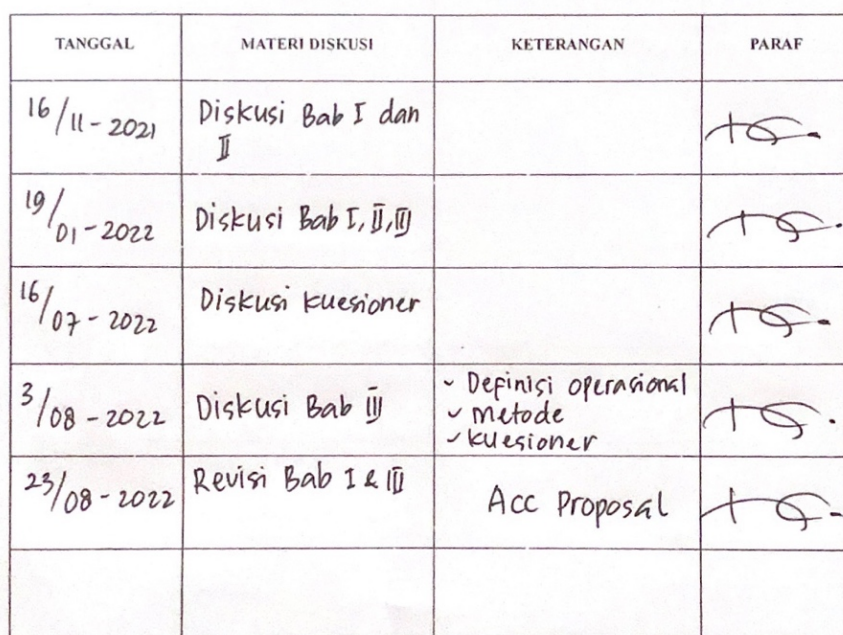 TANGGAL MATERI DISKUSI KETERANGAN PARAF
16/11-2021 Diskusi Bab I dan
II
19/01-2022 Diskusi Bab I, II, III
16/07-2022 Diskusi kuesioner
3/08-2022 Diskusi Bab III
✓ Definisi operasional
✓ metode
✓ kuesioner
23/08-2022 Revisi Bab I & III Acc Proposal